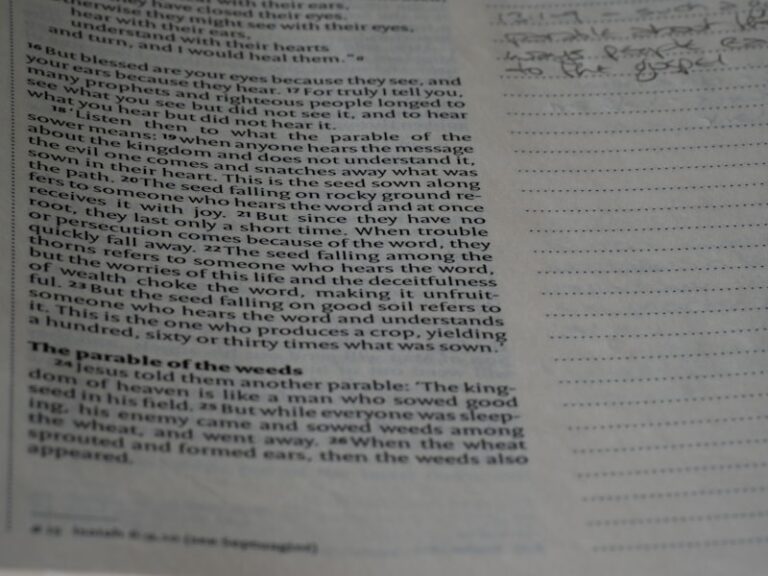 hey have closed their eyes.
therwise they might see with their eyes,
hear with their ears,
understand with their hearts
and turn, and I would heal them."a
16 But blessed are your eyes because they see, and
your ears because they hear. 17 For truly I tell you,
many prophets and righteous people longed to
see what you see but did not see it, and to hear
what you hear but did not hear it.
18 'Listen then to what the parable of the
sower means: 19 when anyone hears the message
about the kingdom and does not understand it,
the evil one comes and snatches away what was
sown in their heart. This is the seed sown along
the path. 20 The seed falling on rocky ground re-
fers to someone who hears the word and at once
receives it with joy. 21 But since they have no
root, they last only a short time. When trouble
or persecution comes because of the word, they
quickly fall away. 22 The seed falling among the
thorns refers to someone who hears the word,
but the worries of this life and the deceitfulness
of wealth choke the word, making it unfruit-
ful. 23 But the seed falling on good soil refers to
someone who hears the word and understands
it. This is the one who produces a crop, yielding
a hundred, sixty or thirty times what was sown.'
The parable of the weeds
24 Jesus told them another parable: 'The king-
dom of heaven is like a man who sowed good
seed in his field. 25 But while everyone was sleep-
ing, his enemy came and sowed weeds among
the wheat, and went away. 26 When the wheat
sprouted and formed ears, then the weeds also
appeared.
Isaiah 6:9,10 (see Septuagint)
parable about
ways people
to the gospel